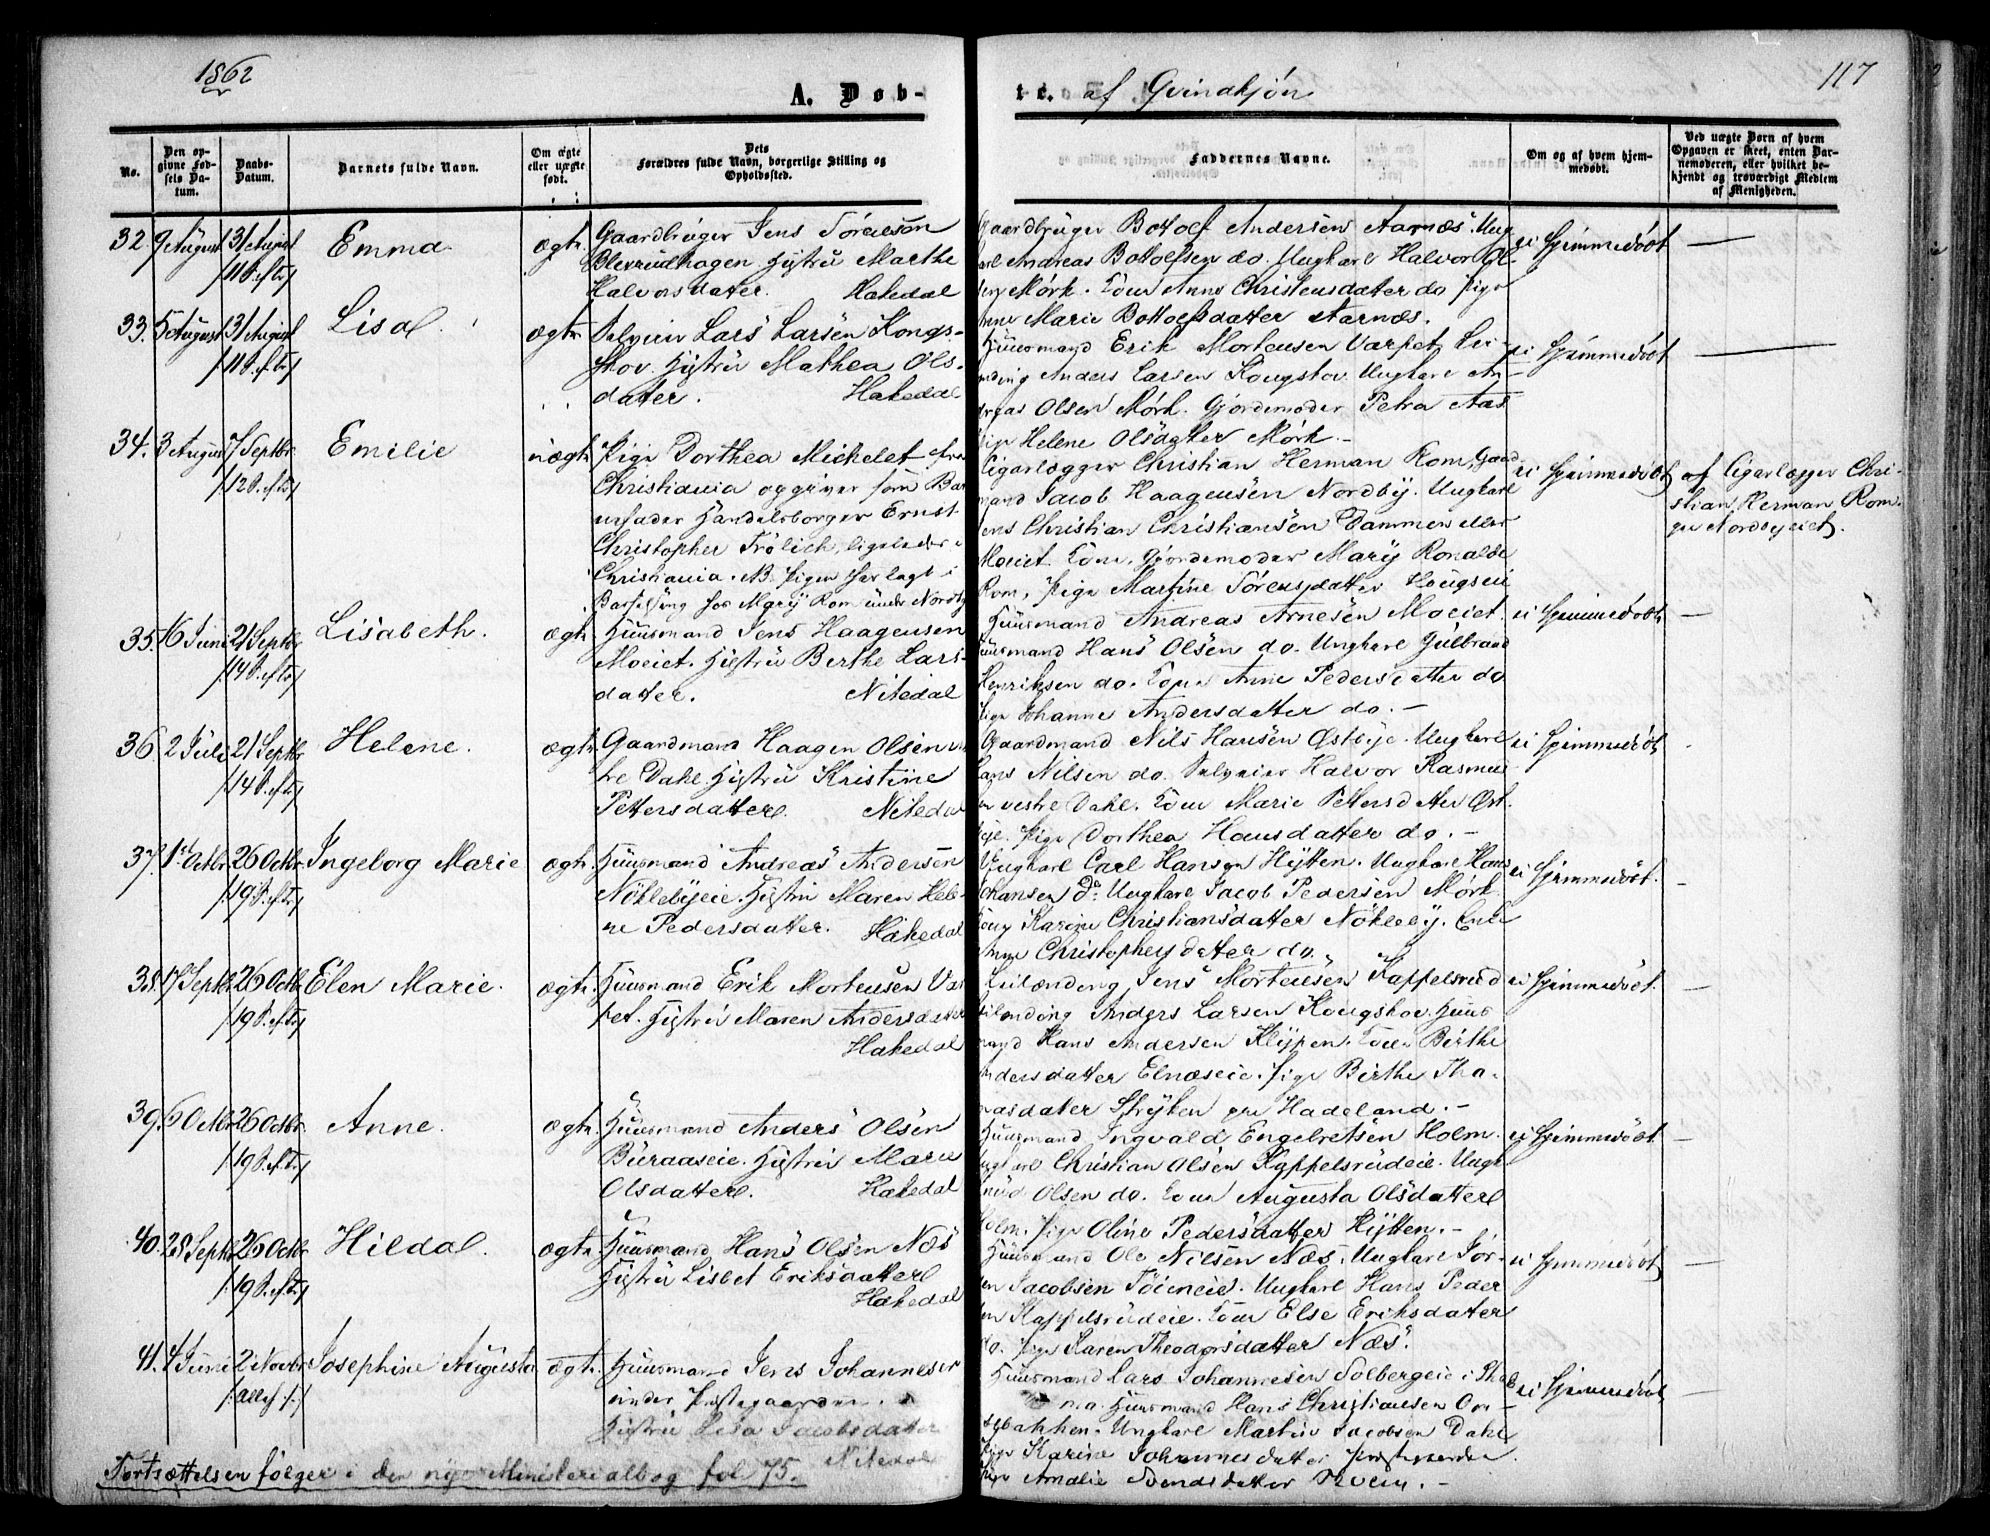 1862
A. Døb-
te. af Qvindkjøn
117
No.
Den op-
givne Fød-
sels Da-
tum.
Daabs-
Datum.
Barnets fulde Navn.
Om ægte
eller uægte
født.
Dets
Forældres fulde Navn, borgerlige Stilling og
Opholdssted.
Faddernes Navne.
Om og af hvem hjem-
medøbt.
Ved uægte Børn af hvem
Opgaven er skeet, enten Bar-
nemoderen, eller hvilket be-
kjendt og troværdigt Medlem
af Menigheden.
32. 9 August 31 August Emma ægte Gaardbruger Jens Sørensen
/:11 S. ef. Tr:/ Blevrudhagen Hustru Marthe
Halvorsdatter. Hakedal
Gaardbruger Bottolf Andersen Aarnæs. Ung-
karl Andreas Bottolfsen do. Ungkarl Halvor
Mørk. Kone Anne Christensdatter do Pige
Anne Marie Bottolfsdatter Aarnæs.
ei hjemmedøbt
33. 5 August 31 August Lisa ægte Selveier Lars Larsen Kongs-
/:11 S. ef. Tr:/ skov. Hustru Mathea Ols-
datter. Hakedal
Huusmand Erik Mortensen Varpet, Lei-
lænding Anders Larsen Kongskov. Ungkarl An-
dreas Olsen Mørk. Gjordemoder Petra Aas
Pige Helene Olsdatter Mørk.-
ei hjemmedøbt
34. 3 August 7 Septbr. Emilie uægte Pige Dorthea Michelet fra
/:12 S. ef. Tr:/ Christiania opgiver som Bar-
nefader Handelsborger Ernst
Christopher Frölich, ligeledes i
Christiania. NB. Pigen har lagt i
Barselseng hos Mary Rom under Nordby
Cigarlægger Christian Herman Rom, Gaard-
mand Jacob Haagensen Nordby. Ungkarl
Jens Christian Christiansen Dammen eller
Moeiet. Kone, Gjordemoder Mary Ronalde
Rom, Pige Martine Sørensdatter Hougseie
ei hjemmedøbt
af Cigarlægger Chri-
stian Herman Rom.
Nordbyeiet.
35. 16 Juni 21 Septbr Lisabeth. ægte Huusmand Jens Haagensen
/:14 S. ef. Tr:/ Moeiet. Hustru Berthe Lars-
datter. Nitedal
Huusmand Andreas Arnesen Moeiet.
Huusmand Hans Olsen do. Ungkarl Gulbrand
Henriksen do. Kone Anne Pedersdatter do
Pige Johanne Andersdatter do.-
ei hjemmedøbt
36 2 Juli 21 Septbr Helene. ægte Gaardmand Haagen Olsen ve-
/:14 S. ef. Tr:/ tre Dahl. Hustru Kristine
Pettersdatter. Nitedal
Gaardmand Nils Hansen Østbye. Ungkarl
Hans Nilsen do. Selveier Halvor Rasmus-
en vestre Dahl. Kone Marie Pettersdatter Øst-
bye. Pige Dorthea Hansdatter do.-
ei hjemmedøbt
37. 1st Octbr. 26 Octbr. Ingeborg Marie ægte Huusmand Andreas Andersen
/:19 S. ef. Tr:/ Nöklebyeie. Hustru Maren Hele-
ne Pedersdatter. Hakedal
Ungkarl Carl Hansen Hytten. Ungkarl Hans
Johansen do. Ungkarl Jacob Pedersen Mørk.
Kone Karine Christiansdatter Nökleby. Enke
Anne Christophersdatter do.
ei hjemmedøbt.
38. 17 Septbr. 26 Octbr. Elen Marie. ægte Huusmand Erik Mortensen Var-
/:19 S. ef. Tr:/ pet. Hustru Maren Andersdatter
Hakedal
Leilænding Jens Mortensen Kappelsrud
Leilænding Anders Larsen Kongskov. Huus-
mand Hans Andersen Klypen. Kone Birthe
Andersdatter Elnæseie. Pige Birthe Tho-
masdatter Stryken paa Hadeland.-
ei hjemmedøbt.
39. 6 Octbr. 26 Octbr. Anne. ægte Huusmand Anders Olsen
/:19 S. ef. Tr:/ Buraaseie. Hustru Marie
Olsdatter. Hakedal
Huusmand Ingvald Engelretsen Holm.
Ungkarl Christian Olsen Kappelsrudeie. Ungk
Knud Olsen do. Kone Augusta Olsdatter
Holm. Pige Oline Pedersdatter Hytten.-
ei hjemmedøbt.
40. 28 Septbr 26 Octbr. Hilda. ægte Huusmand Hans Olsen Næs
/:19 S. ef. Tr:/ Hustru Lisbet Eriksdatter
Hakedal
Huusmand Ole Nilsen Næs. Ungkarl Sør-
en Jacobsen Töieneie. Ungkarl Hans Peder
sen Kappelsrudeie. Kone Else Eriksdatter
do. Pige Karen Theodorsdatter Næs.
ei hjemmedøbt
41. 4 Juni 2 Novbr. Josephine Augusta ægte Huusmand Jens Johannesen
/:Alleh:/ under Præstegaarden.
Hustru Lisa Jacobsdatter
Nitedal
Huusmand Lars Johannesen Solbergeie i
Huusmand Hans Christiansen
bakken. Ungkarl Martin Jacobsen Dahl
Pige Karine Johannesdatter Præstegaarden.
Pige Amalie Svendsdatter.-
ei hjemmedøbt
Fortsættelsen følger i den nye Ministerialbog fol 75.